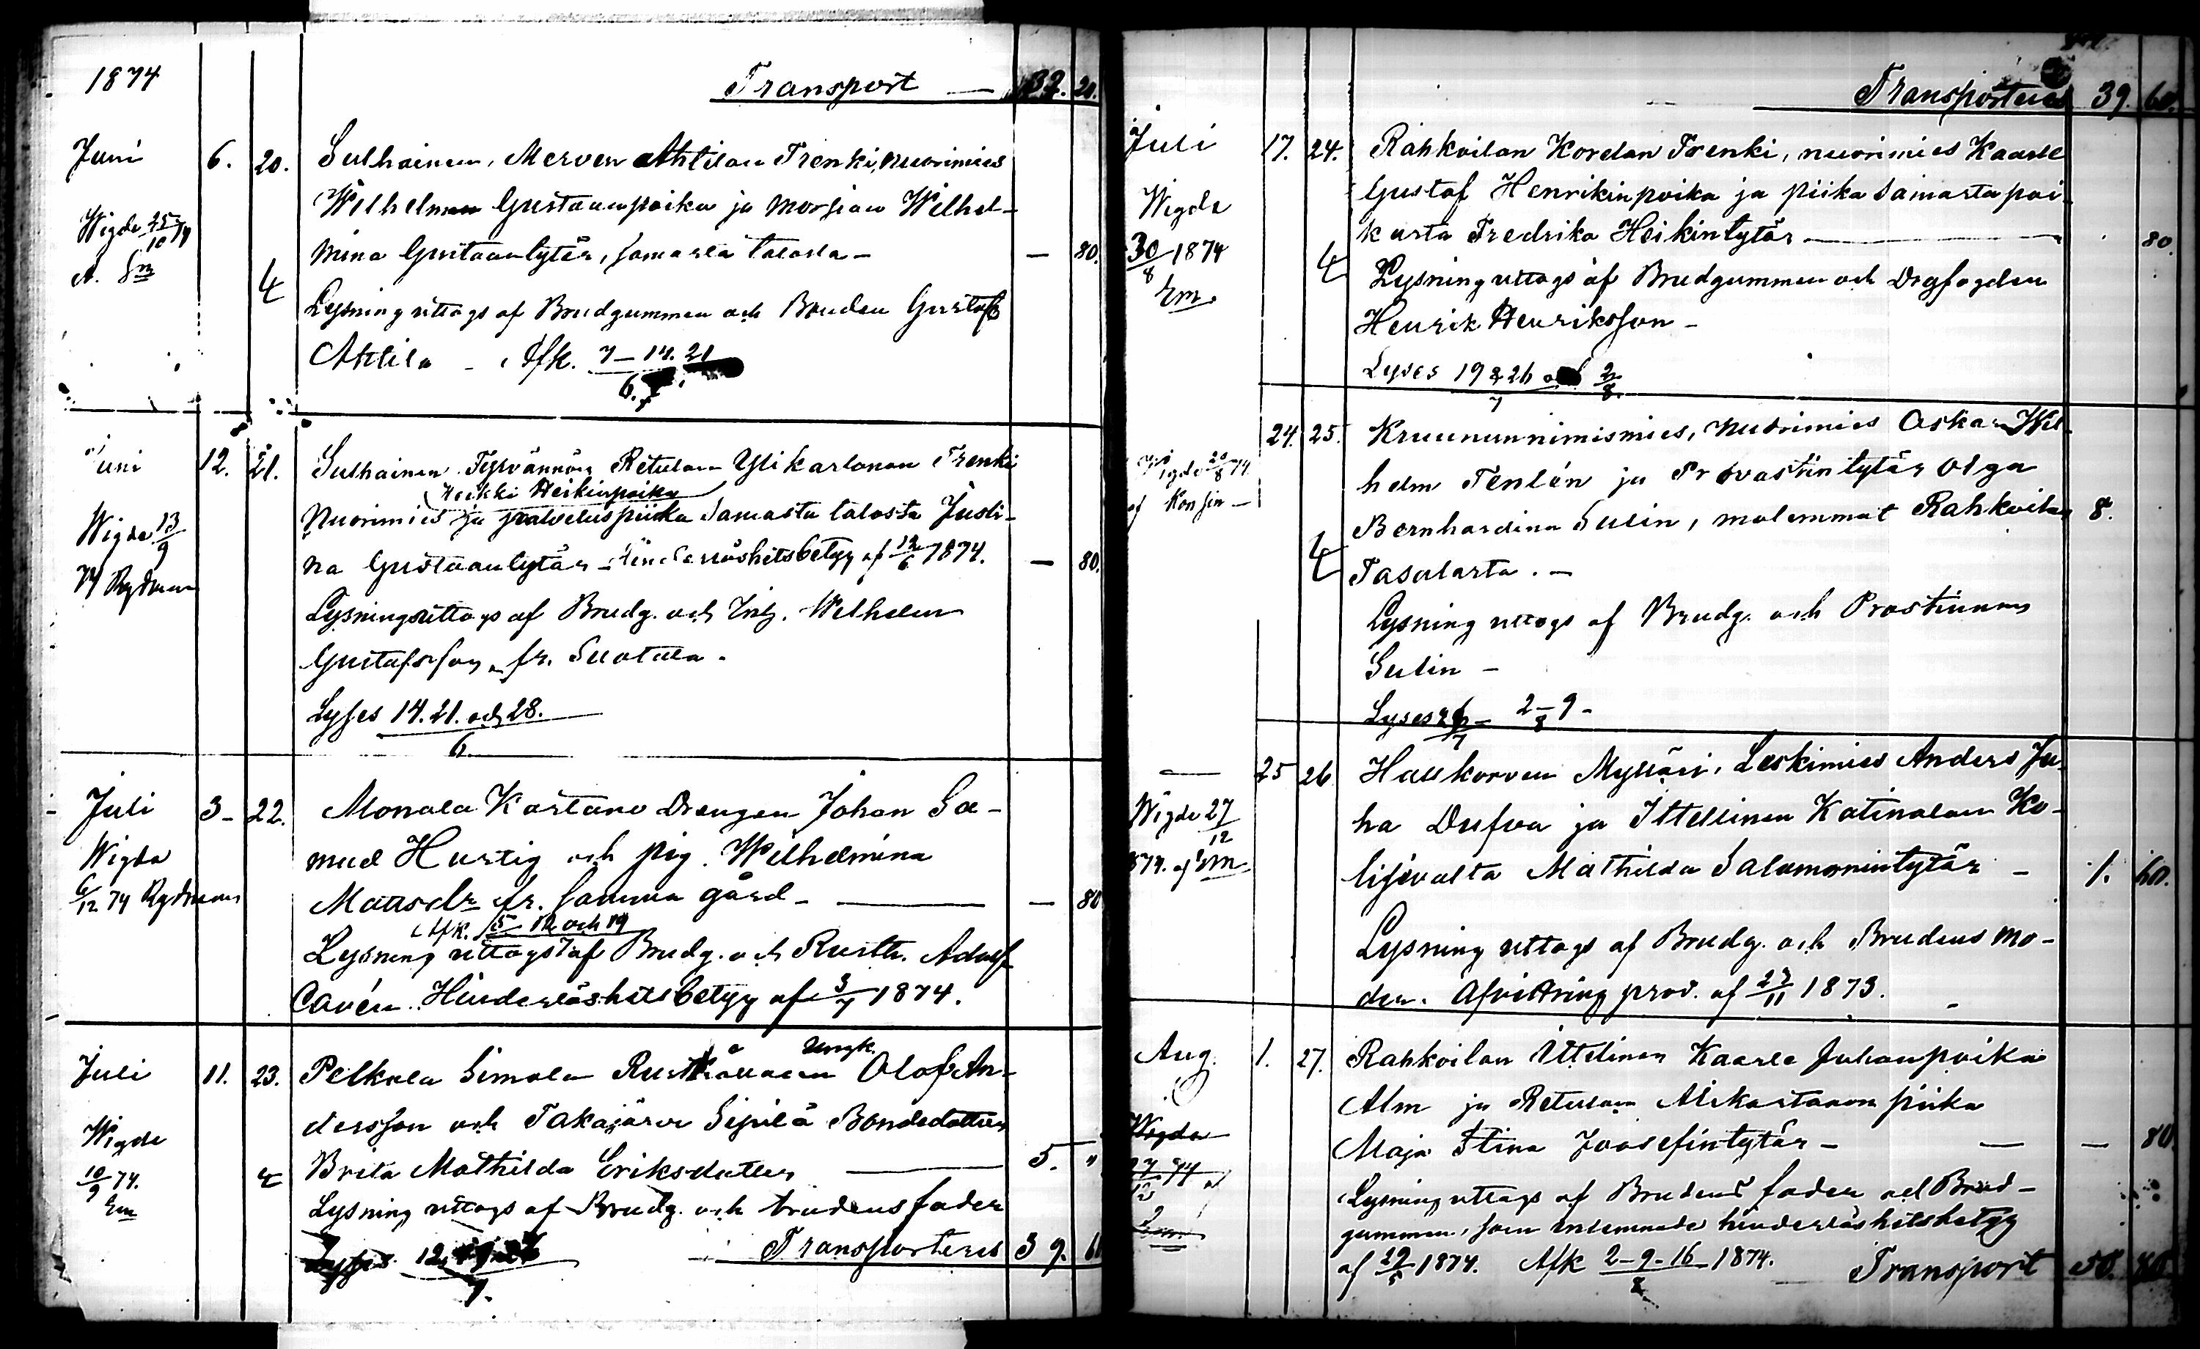 1874 Transport — 32. 20.
Juni 6. 20. Sulhainen, Merven Ahtilan Trenki, nuorimies
Wilhelm Gustaanpoika ja morsian Wilhel-
Wigde 25/10 74
mina Gustaantytär, samasta talosta — — 80.
A. Em 4
Lysning uttags af Brudgummen och Bonden Gustaf
Ahtila - Afk. 7–14. 21
6.
Juni 12. 21. Sulhainen Tyrvännön Retulan Ylikartanon Trenki
Heikki Heikinpoika
Nuorimies ja palveluspiika Samasta talosta Justi-
Wigde 13/9
na Gustaantytär - Hinderslöshetsbetyg af 12/6 1874. — 80.
74 Rydman
Lysning uttags af Brudg. och Inh. Wilhelm
Gustafsson, fr. Suotala.
Lyses 14. 21. och 28.
6.
Juli 3- 22. Monala Kartano Drengen Johan Sa-
muel Hurtig och pig. Wilhelmina
Wigda
6/12 74 Rydman
Mattsdr fr. samma gård — — 80
Afk. 5 12 och 19
7
Lysning uttags af Brudg. och Rusth. Adolf
Cavén. Hinderslöshetsbetyg af 3/7 1874.
Juli 11. 23. Pelkola Simola Rusthållaren Ungk. Olof An-
dersson och Takajärvi Sipilä Bondedottren
Wigde
10/9 74.
Em
4 Brita Mathilda Eriksdotter — 5. "
Lysning uttags af Brudg. och brudens fader
Lyses 12. 19. 26
7.
Transporteres 39. 60
Transporteres 39. 60.
Juli 17. 24. Rahkoilan Kordan Trenki, nuorimies Kaarle
Gustaf Henrikinpoika ja piika Samasta pai
Wigde
kasta Fredrika Heikintytär — 80.
30/8 1874
Em.
4 Lysning uttags af Brudgummen och Dragfogden
Henrik Henriksson -
Lyses 19 & 26 och 2/8
7
24. 25. Kruununnimismies, nuorimies Oskar Wil-
helm Tenlén ja Provastin tytär Olga
Wigde 20/8 74
af
Bernhardina Sulin, molemmat Rahkoilan 8.
4 Tasalasta. -
Lysning uttags af Brudg. och Prostinnan
Sulin -
Lyses 26/7 - 2–9 -
8
— 25 26 Haukorven Mylläri, Leskimies Anders Ju-
ha Dufva ja Ittellinen Katinalan Ko-
Wigde 27/12
874. af Em
lisevalta Mathilda Salamonintytär - 1. 60.
Lysning uttags af Brudg. och Brudens mo-
der. Afvittring prod. af 23/11 1873.
Aug. 1. 27. Rahkoilan Ittelinen Kaarle Juhanpoika
Alm ja Retulan Alikartanon piika
Wigde
27/12 74 af
Em
Maja Stina Joosefintytär — — 80.
Lysning uttags af Brudens fader och Brud-
gummen, som inlemnade hinderslöshetsbetyg
af 29/5 1874. Afk 2–9–16 1874.
8
Transport 50. 40